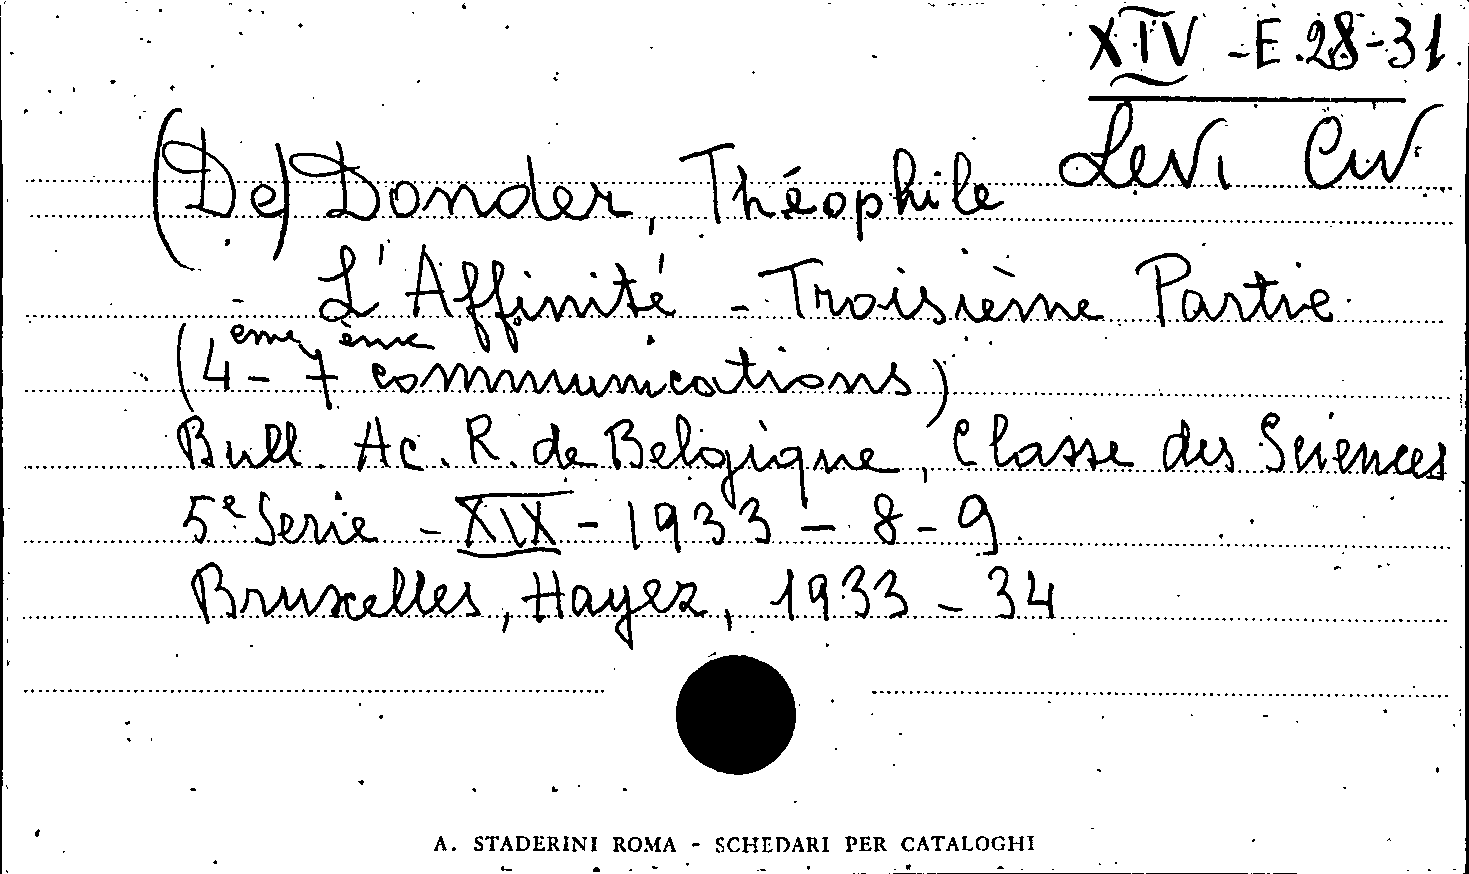 XIV - E.28-31
Levi Civ.
(De) Donder, Théophile
L'Affinité - Troisième Partie
(4ème - 7ème communications)
Bull. Ac. R. de Belgique, Classe des Sciences
5e Serie - XIX - 1933 - 8 - 9
Bruxelles, Hayez, 1933 - 34
A. STADERINI ROMA - SCHEDARI PER CATALOGHI